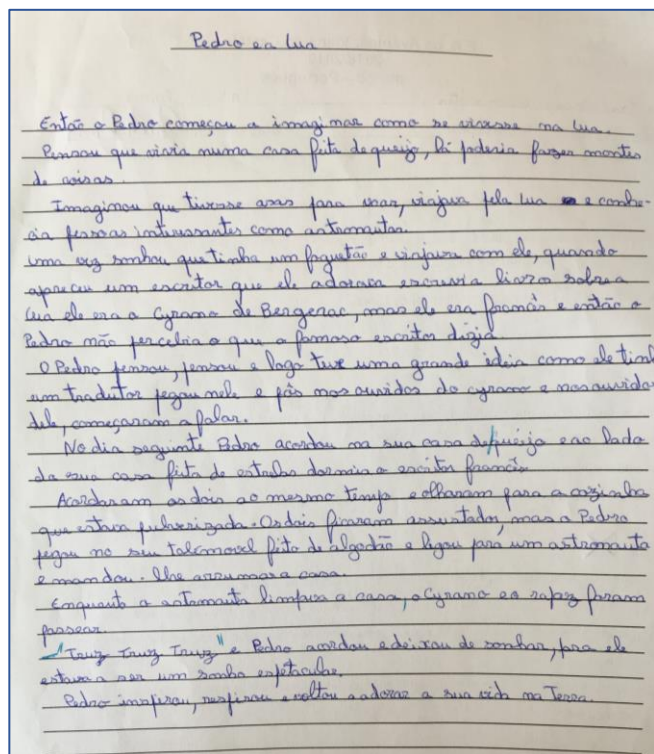 Pedro e a lua
Então o Pedro começou a imaginar como se vivesse na lua.
Pensou que vivia numa casa feita de queijo, lá poderia fazer montes
de coisas.
Imaginou que tivesse asas para voar, viajava pela lua e conhe-
cia pessoas interessantes como astronautas.
uma vez sonhou que tinha um foguetão e viajava com ele, quando
apreceu um escritor que ele adorava escrevia livros sobre a
lua ele era o Cyrano de Bergerac, mas ele era francês e então o
Pedro não percebia o que o famoso escritor dizia.
O Pedro pensou, pensou e logo teve uma grande ideia como ele tinh
um tradutor pegou nele e pôs nos ouvidos do cyrano e nos ouvido
dele, começaram a falar.
No dia seguinte Pedro acordou na sua casa de queijo e ao lado
da sua casa feita de estrelas dormia o escritor francês.
Acordaram os dois ao mesmo tempo e olharam para a cozinha
que estava pulverizada. Os dois ficaram assustados, mas o Pedro
pegou no seu telemovel feito de algodão e ligou para um astronauta
e mandou-lhe arrumar a casa.
Enquanto o astronauta limpava a casa, o Cyrano e o rapaz foram
passear.
"Truz Truz Truz" e Pedro acordou e deixou de sonhar, pra ele
estava a ser um sonho espetacular.
Pedro inspirou, respirou e voltou a adorar a sua vida na Terra.